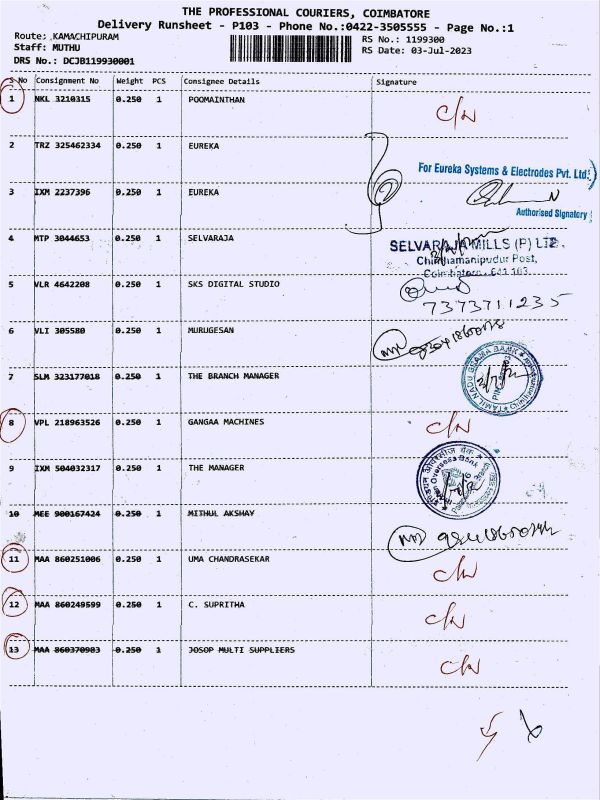 THE PROFESSIONAL COURIERS, COIMBATORE
Delivery Runsheet - P103 - Phone No.:0422-3505555 - Page No.:1
Route: KAMACHIPURAM RS No.: 1199300
Staff: MUTHU RS Date: 03-Jul-2023
DRS No.: DCJB119930001
S No Consignment No Weight PCS Consignee Details Signature
1 NKL 3210315 0.250 1 POOMAINTHAN
2 TRZ 325462334 0.250 1 EUREKA
For Eureka Systems & Electrodes Pvt. Ltd.
3 IXM 2237396 0.250 1 EUREKA
Authorised Signatory
4 MTP 3044653 0.250 1 SELVARAJA
SELVARAJA MILLS (P) LTD.
Chinthamanipudur Post,
Coimbatore - 641 103.
5 VLR 4642208 0.250 1 SKS DIGITAL STUDIO
7373711235
6 VLI 305580 0.250 1 MURUGESAN
7 SLM 323177018 0.250 1 THE BRANCH MANAGER
TAMIL NADU GRAMA BANK
8 VPL 218963526 0.250 1 GANGAA MACHINES
9 IXM 504032317 0.250 1 THE MANAGER
Indian Overseas Bank
10 MEE 900167424 0.250 1 MITHUL AKSHAY
11 MAA 860251006 0.250 1 UMA CHANDRASEKAR
12 MAA 860249599 0.250 1 C. SUPRITHA
13 MAA 860370903 0.250 1 JOSOP MULTI SUPPLIERS